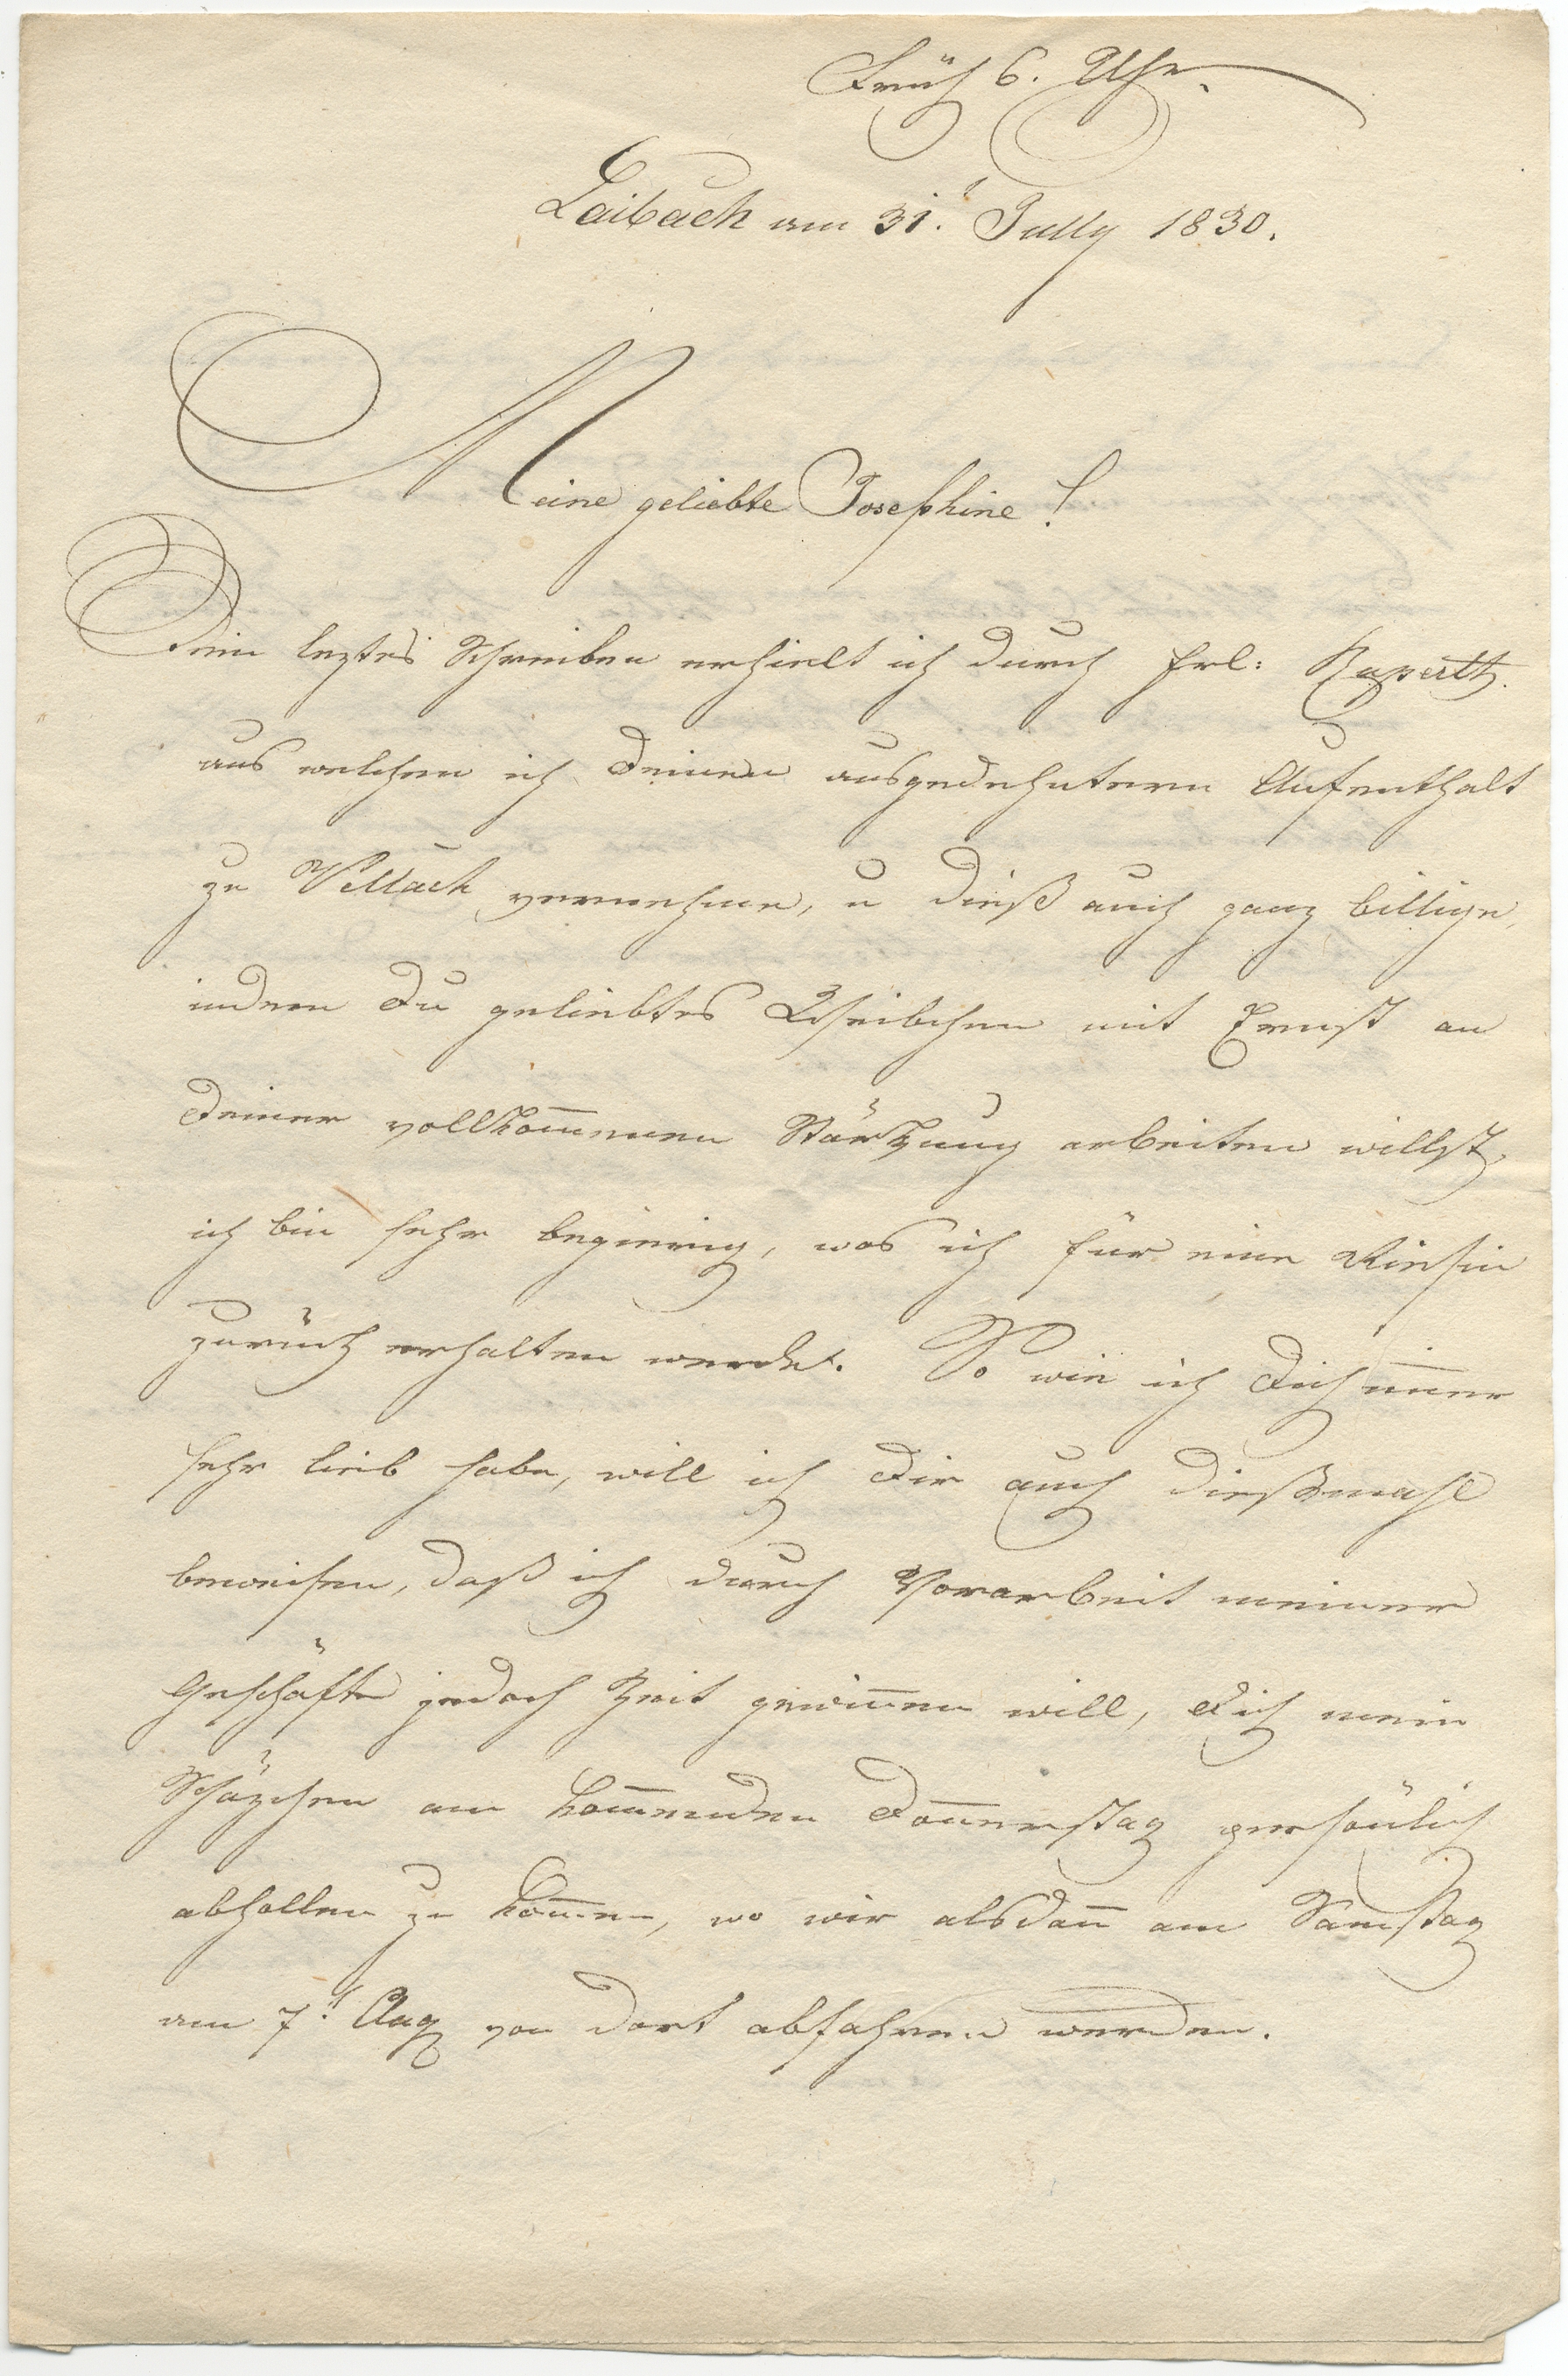 Früh 6. Uhr.
Laibach am 31. July 1830.
Meine geliebte Josephine!
Dein leztes Schreiben erhielt ich durch Frl:
aus welchem ich Deinen ausgedehntern Aufenthalt
zu Vellach vernehme, u dieß auch ganz billige,
indem Du geliebtes Weibchen mit Ernst an
Deiner vollkom̅enen Stärkung arbeiten willst,
ich bin sehr begierig, was ich für eine Riesin
zurück erhalten werde. So wie ich Dich im̅er
sehr lieb habe, will ich Dir auch dießmahl
beweisen, daß ich durch Vorarbeit meiner
Geschäfte jedoch Zeit gewin̅en will, Dich mein
Schäzchen am kom̅enden Don̅erstag persönlich
abhollen zu kom̅en, wo wir alsdan̅ am Samstag
am 7. Aug von dort abfahren werden.